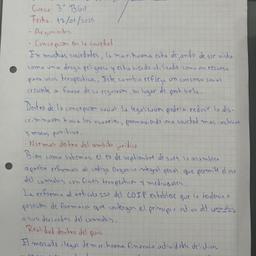 Curso: 3° BGU
Fecha: 12/01/2025
- Argumentos
- Concepción en la sociedad
En muchas sociedades, la marihuana esta dejando de ser vista
como una droga peligrosa y esta siendo utilizada como un recurso
para usos terapeuticos, Este cambio refleja un consenso social
creciente a favor de su regulación, en lugar de prohibirla.
Dentro de la concepción social la legalización podría reducir la dis-
criminación hacia los usuarios, promoviendo una sociedad mas inclusiva
y menos punitiva.
- Normas dentro del ambito jurídico
Bien como sabemos el de septiembre de la asamblea
aprobo reformas al código Orgánico integral penal que permite el uso
del cannabis con fines terapeuticos y medicinales.
La reforma al articulo del COIP establece que la tenencia o
posesión de farmacos que contengan el principio activo del cannabis
o sus derivados del cannabis.
Realidad dentro del país
El mercado ilegal de marihuana financia actividades delictivas